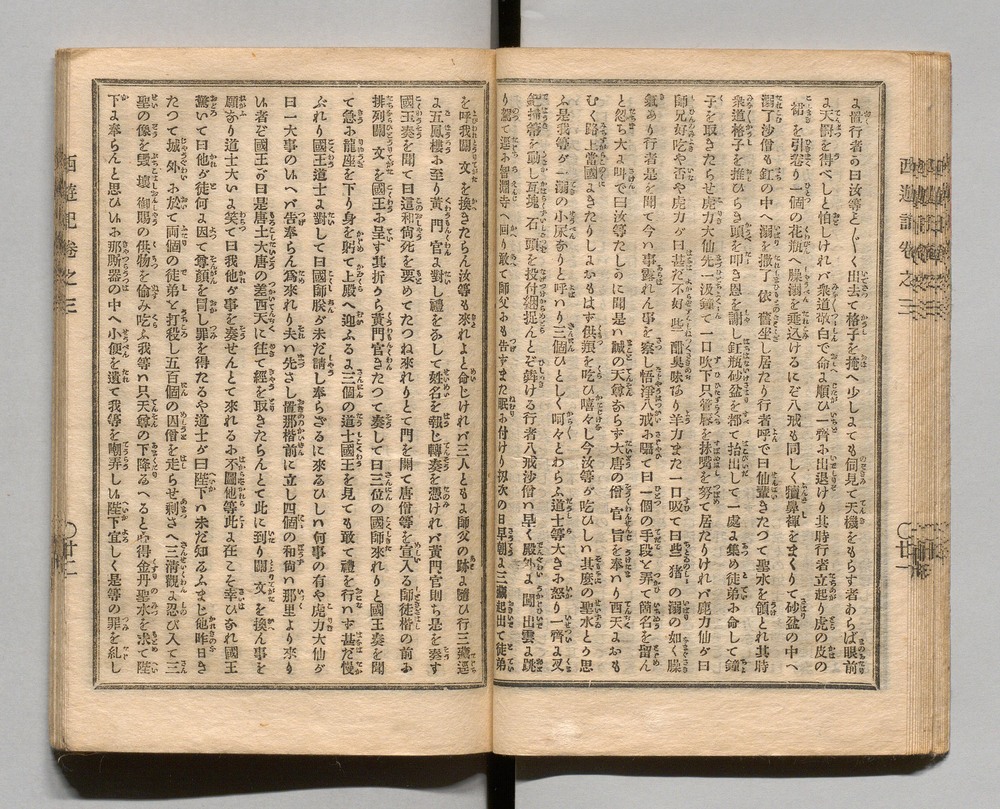 西遊記卷之三
〇廿一
よ暫行者の曰汝等とくく出去て格子を掩へ少しよても伺見て天機をもらす者あらば眼前
よ天罸を得べしと怕しけれバ衆道敬白で命よ順ひ一齊お出退けり其時行者立起り虎の皮の
裙を引惹り一個の花瓶へ臊溺を乗込けるにぞ八戒も同しく犢鼻褌をまくりて砂盆の中へ
溺了沙僧も缸の中へ溺を撒了依舊坐し居たり行者呼で曰仙輩きたつて聖水を領とれ其時
衆道格子を推ひらき頭を叩き恩を謝し缸瓶砂盆を都て抬出して一處よ集め徒弟お命して鐘
子を取きたらせ虎力大仙先一汲鐘て一口吹下只管唇を抹嘴を努て居たりけれバ鹿力仙が曰
師兄好吃や否や虎力が曰甚だ不好一些酣臭味あり羊力また一口吸て曰些猪の溺の如く臊
氣あり行者是を聞て今ハ事露れん事を察し悟淨八戒お囁て曰一個の手段と弄て箇名を留ん
と忽ち大よ叫で曰汝等たしかに聞是ハ誠の天尊あらず大唐の僧官旨を奉ハり西天よおも
むく路上當國よきたりしよおもはず供祖を吃ひ嘻々し今汝等が吃ひしハ其麼の聖水とり思
ふ是我等が一溺の小尿ありと呼ハり三個ひとしく呵々とわらふ道士等大きお怒り一齊よ叉
鈀掃箒を動し瓦塊石頭を投付綑捉んとぞ犇ける行者八戒沙僧ハ早く殿外よ闖出雲よ跳
り駕て逕お智淵寺へ回り敢て師父おも告ずまた眠お付けり扨次の日早朝よ三藏起出て徒弟
を呼我關文を換きたらん汝等も來れよと命じけれバ三人ともよ師父の跡よ隨ひ行三藏逕
よ五鳳樓お至り黃門官よ對し禮をあして姓名を報じ轉奏を憑けれバ黃門官則ち是を奏す
國王奏を聞て曰這和尙死を要めてたつね來れりとて門を開て唐僧等を宣入る師徒楷の前お
排列關文を國王お呈す其折から黃門官きたつて奏して曰三位の國師來れりと國王奏を聞
て急お龍座を下り身を躬て上殿へ迎ふるよ三個の道士國王を見ても敢て禮を行ハす甚だ慢
ふれり國王道士よ對して曰國師朕が未だ請し奉らざるに來るひしハ何事の有や虎力大仙が
曰一大事のしハべバ告奉らん爲來れり夫ハ先さし置那楷前に立し四個の和尙ハ那里より來り
しハ者ぞ國王が曰是ハ唐土大唐の差西天に往て經を取きたらんとて此に到り關文を換ん事を
願あり道士大いよ笑て曰我他が事を奏せんとて來れるお不圖他等此よ在こそ幸ひあれ國王
驚いて曰他が徒何よ因て尊顔を冒し罪を得たるや道士が曰陛下ハ未だ知るふまじ他昨日き
たつて城外お於て兩個の徒弟と打殺し五百個の囚僧を走らせ剩さへ三清觀よ忍び入て三
聖の像を毀壞し御賜の供物を偸み吃ふ我等ハ只天尊の下降るへると心得金丹聖水を求めて陛
下よ奉らんと思ひしハお那厮器の中へ小便を遺て我等を嘲弄しハ陛下宜しく是等の罪を糺し
西遊記卷之三
〇廿二